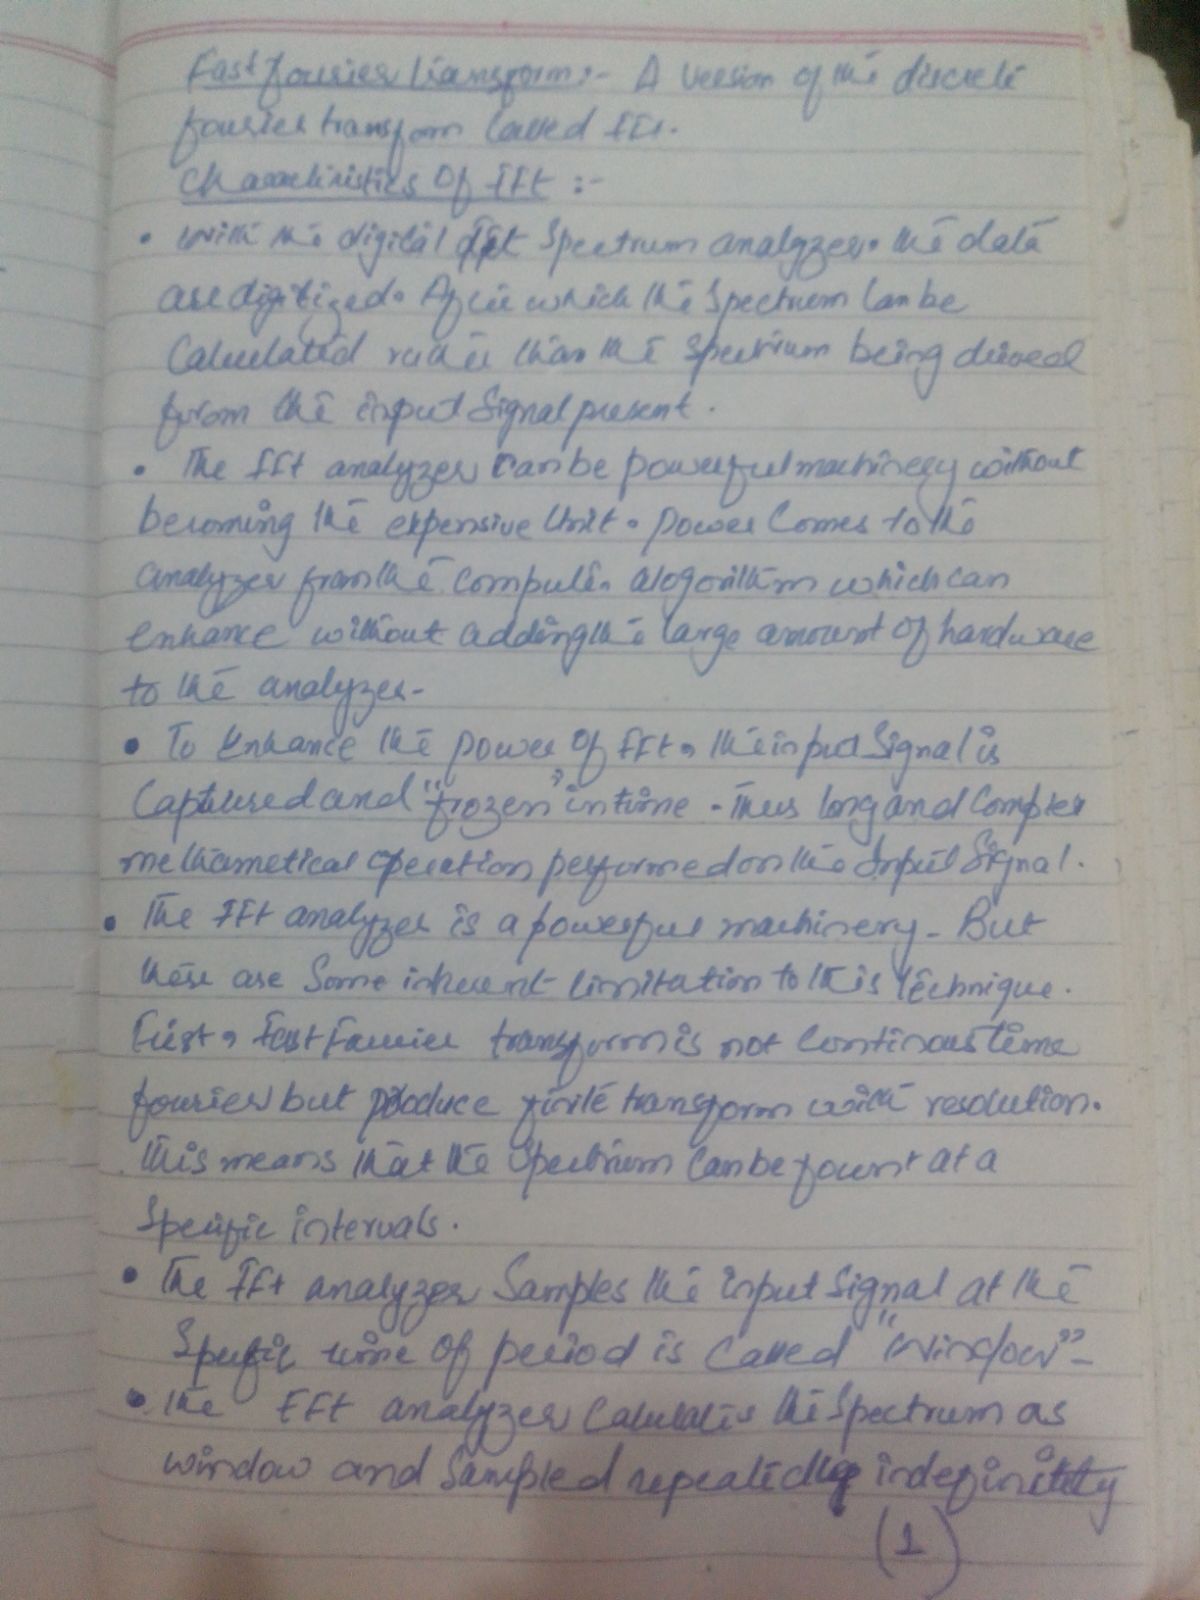 Fast fourier transform:- A version of the discrete
fourier transform called fft.
Characteristics Of fft :-
• With the digital fft Spectrum analyzer. the data
are digitized. After which the Spectrum can be
Calculated rather than the spectrum being dirved
from the input Signal present.
• The fft analyzer can be powerful machinery without
becoming the expensive Unit. power comes to the
analyzer from the compute. alogorithm which can
enhance without adding the large amount of hardware
to the analyzer-
• To Enhance the power Of fft, the input Signal is
Captured and "frozen" in time. Thus long and Complex
methametical operation performed on the Input Signal.
• The Fft analyzer is a powerful machinery. But
there are Some inherent limitation to this technique.
First, Fast Fourier transform is not Continous time
fourier but produce finite transform with resolution.
This means that the Spectrum can be fount at a
Specific intervals.
• The Fft analyzer Samples the input Signal at the
Specific time Of period is called "window"-
• The Fft analyzer Calculates the Spectrum as
window and Sampled repeatedly indefinitely
(1)